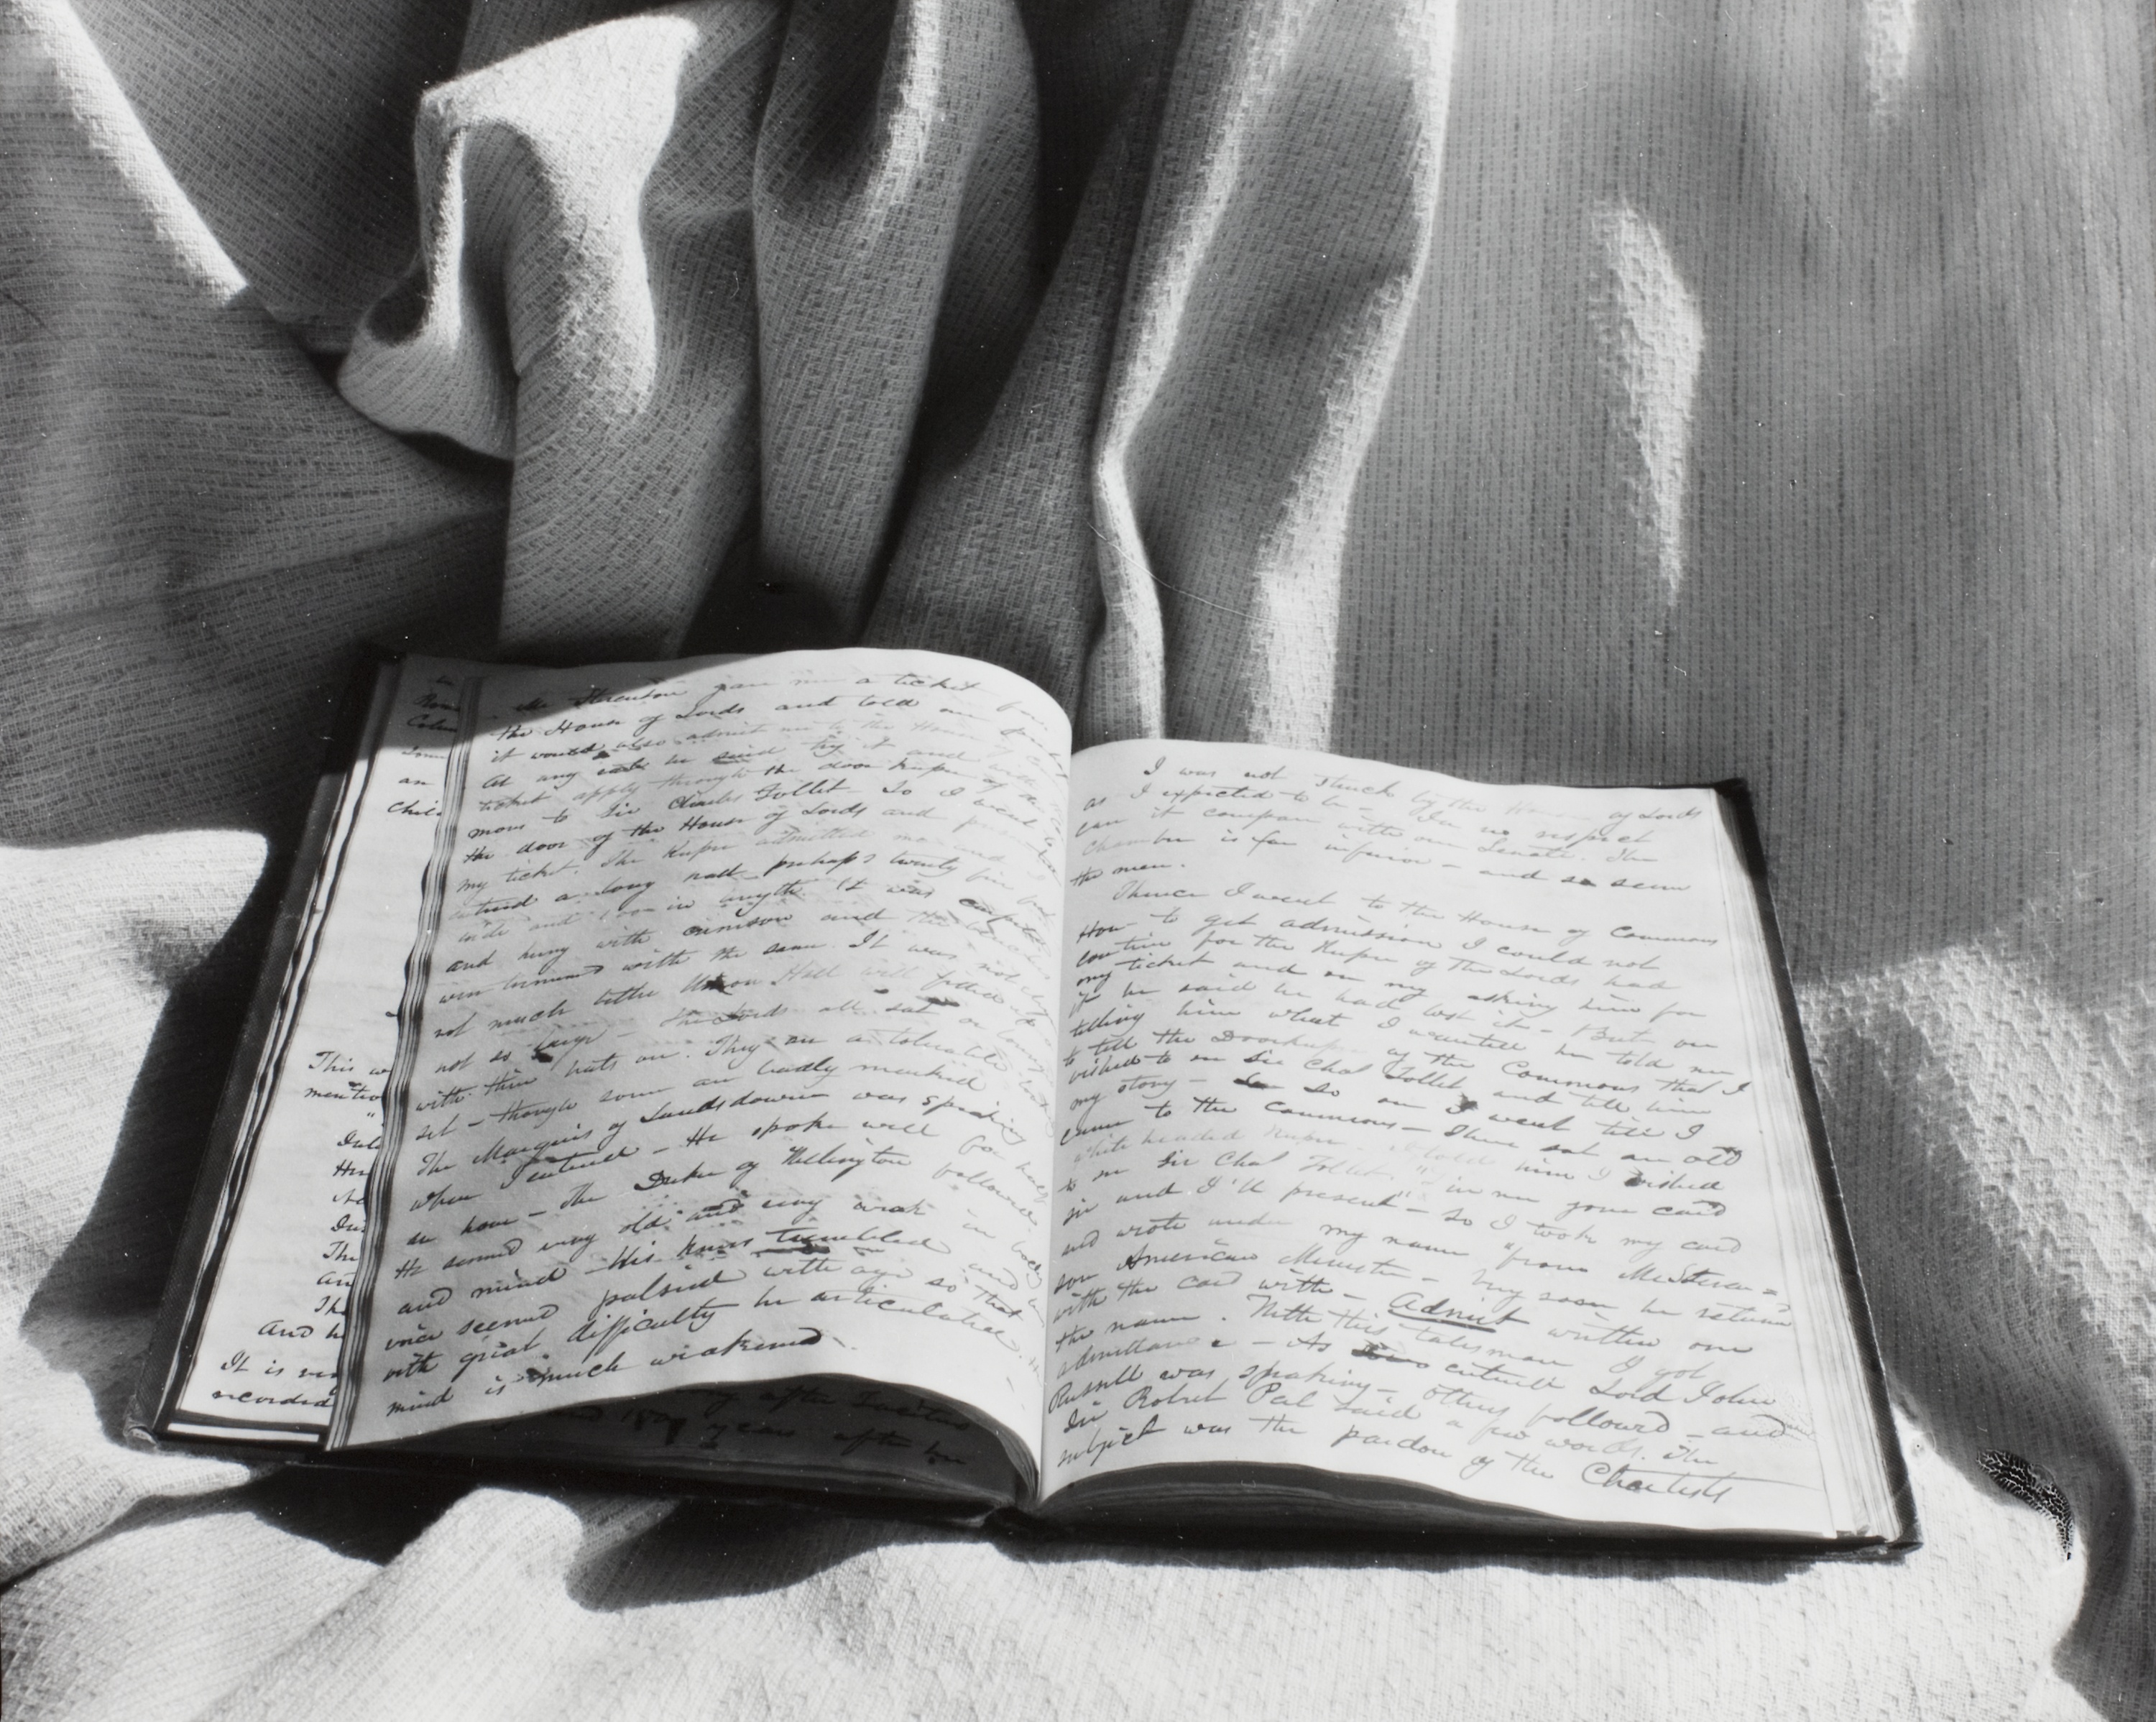 in
Rom
Colum
Lon
an
Chil
This w
mentio
"
Dul
Her
An
Du
Th
an
Th
and h
It is ver
recorded
Mr Stevenson gave me a ticket for
the House of Lords and told me
it would also admit me to the House
at any rate he said try it and with
ticket apply through the door keeper of the
mons to Sir Charles Follet. So I went to
the door of the House of Lords and
my ticket. The Keeper admitted me and I
entered a long hall perhaps twenty five feet
wide and in length. It was carpeted
and hung with crimson and the benches
were trimmed with the same. It was not
not much better Union Hall well filled and
not so large - The Lords all sat or
with their hats on. They are a tolerable
set - though some are badly marked
The Marquis of Landsdowne was speaking
when I entered - He spoke well for
an hour - The Duke of Wellington followed
He seemed very old and very weak in body
and mind - His knees trembled and
voice seemed palsied with age so that
with great difficulty he articulated.
mind is much weakened -
after
years after
I was not struck by the House of Lords
as I expected to be - In no respect
can it compare with our Senate. The
chamber is far inferior - and so seem
the men.
Thence I went to the House of Commons
How to get admission I could not
for the Keeper of the Lords had
my ticket and on my asking him for
it he said he had lost it - But on
telling him what I wanted he told me
to tell the Doorkeeper of the Commons that I
wished to see Sir Chal Follet and tell him
my story - So on I went till I
came to the commons - There sat an old
white headed Keeper I told him I wished
to see Sir Chal Follet. "Give me your card
sir and I'll present" - So I took my card
and wrote under my name "from Mr Steven =
son American Minister - very soon he return
with the card with - Admit written over
the name. With this talisman I got
admittance - As I entered Lord John
Russell was speaking - others followed - and
Sir Robert Peel said a few words. The
subject was the pardon of the Chartists